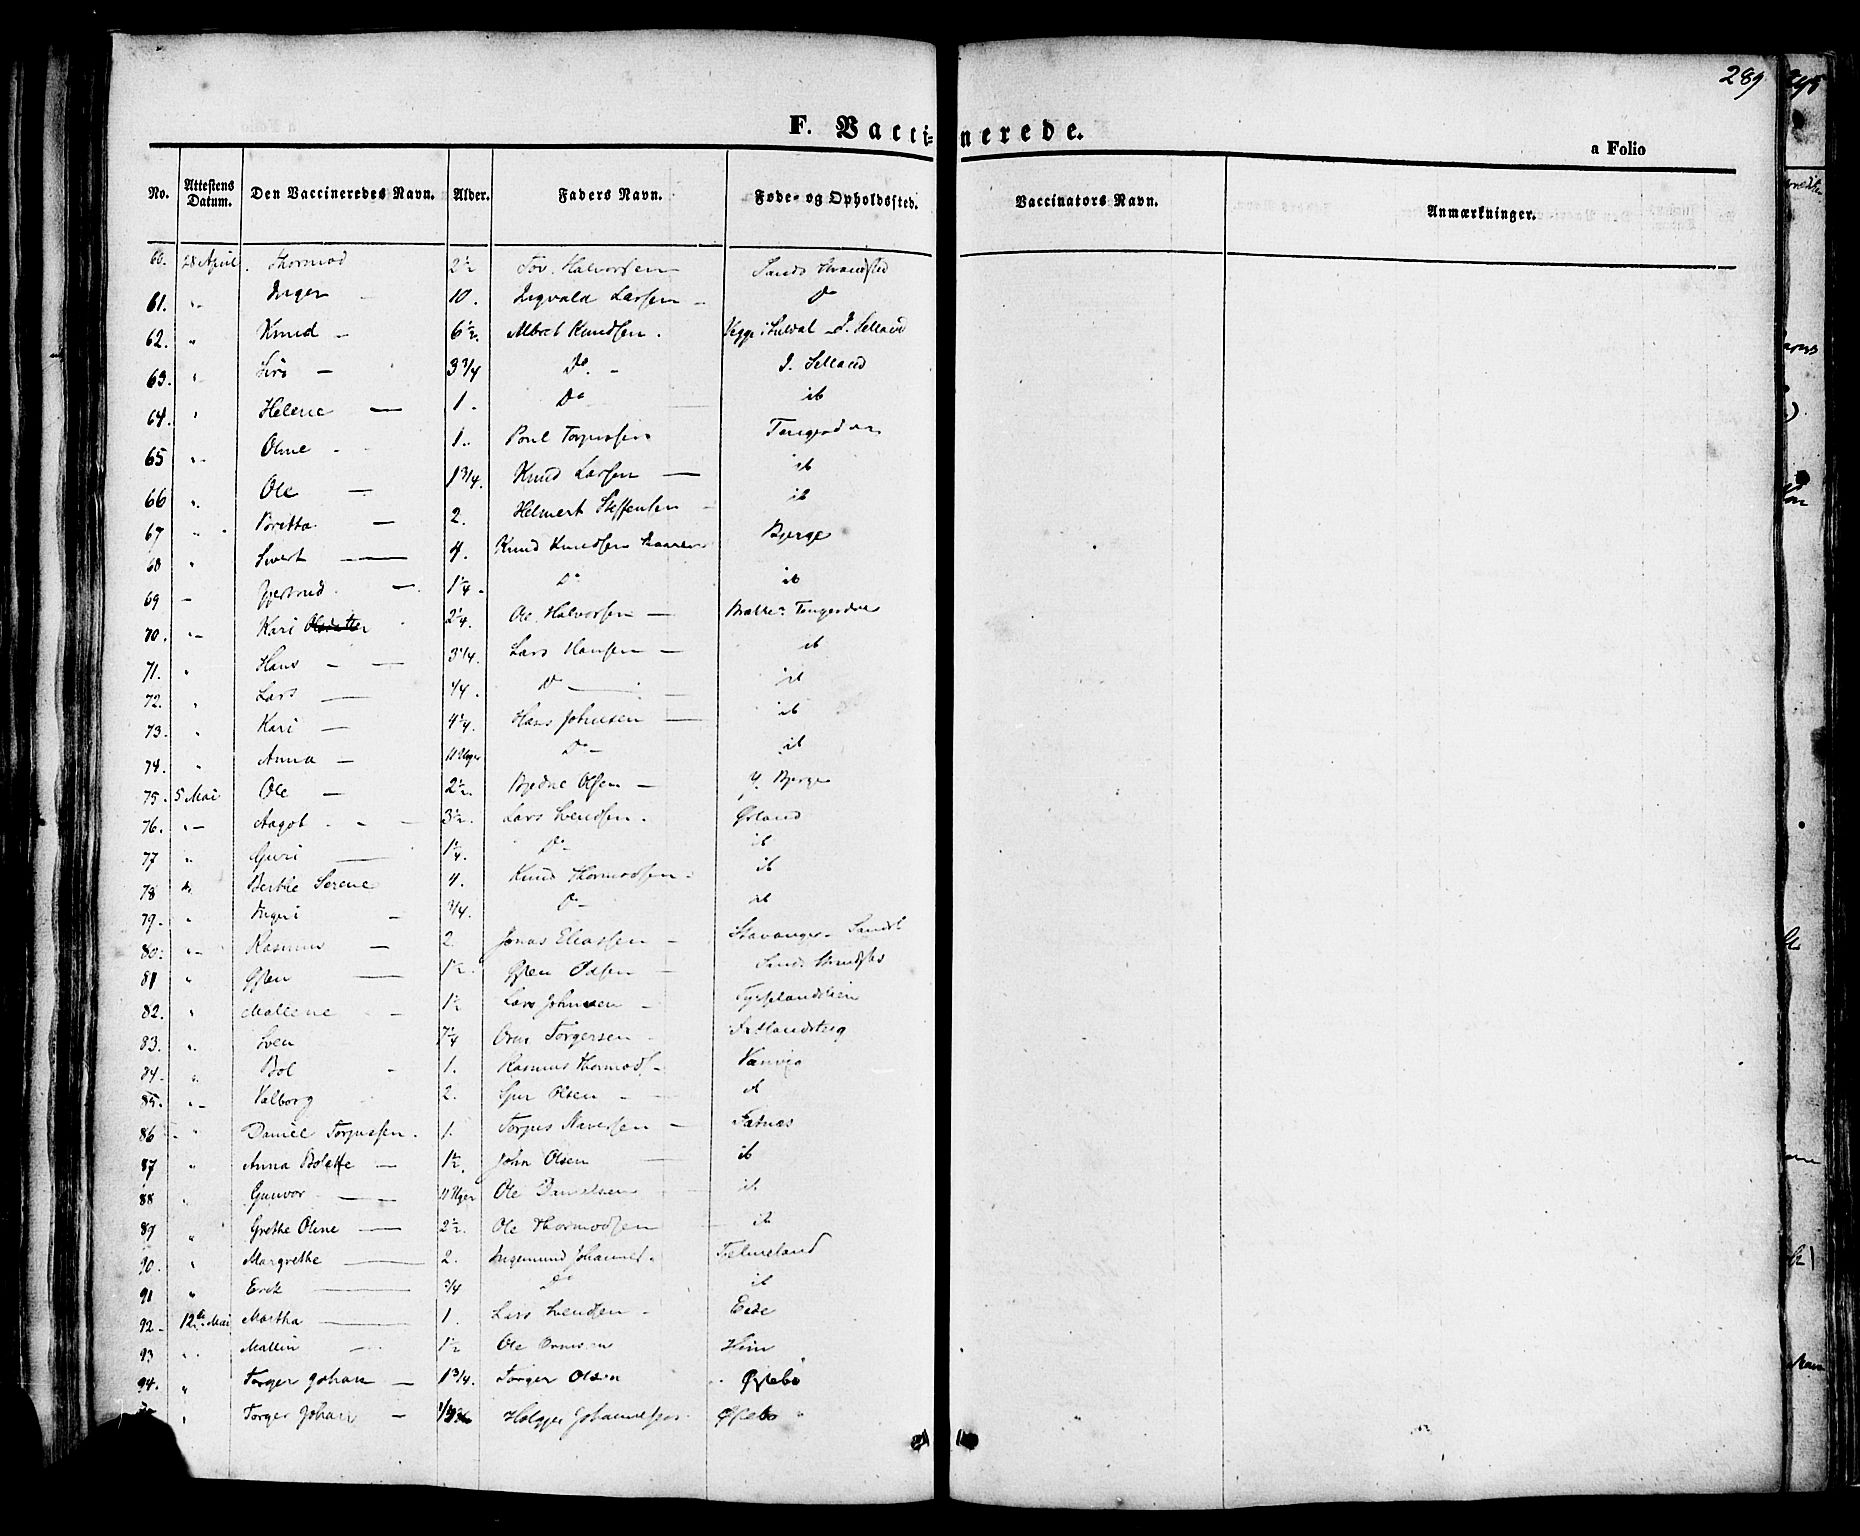 289
F. Vaccinerede.
a Folio
No. Attestens Datum. Den Vaccineredes Navn. Alder. Faders Navn. Føde- og Opholdssted. Vaccinators Navn. Anmærkninger.
60. 28 April. Thormod 2½ Tov. Halvorsen Sands Strandsted
61. " Inger 10. Ingvald Larsen Do
62. " Knud 6½. Albret Knudsen. i Suldal I. Selland
63. " Siri 3 3/4 Do. I. Selland
64. " Helene 1. Do ib
65 " Oline 1. Poul Torjussen Tengesdal
66 " Ole 1 3/4. Knud Larsen ib
67 " Boretta 2. Helmert Steffensen ib
68 " Sivert 4. Knud Knudsen Bjerge
69 Gjertrud. 1¼. Do ib
70. " Kari 2¼. Ole Halvorsen Bakke Tengesdal
71. " Hans 3 1/4. Lars Hansen ib
72. " Lars 1/4. Do ib
73. " Kari 4¼. Hans Johnsen ib
74. " Anna 11 Uger Do ib
75. 5 Mai Ole 2½. Olsen Y. Bjerge
76. " Aagot 3½. Lars Svendsen. Øsland
77 " Guri 1¼. Do ib
78 " Berthe Serene 4. Knud Thormodsen ib
79. " Ingeri 3/4. Do ib
80. " Rasmus 2. Jonas Eliassen Stavanger
81 " Østen 1½. Østen Sands Strandsted
82. " Mallene 1½ Lars Johnsen
83. " Sven 7¼ Orm Torgersen
84. " Bol 1. Rasmus Thormods Vanvig
85. " Valborg 2. Olsen ib
86 " Daniel Torjussen. 1. Torjus Fatnæs
87 " Anna Bolette 1½. John Olsen ib
88 " Gunvor 11 Uger Ole Danielsen ib
89 " Grethe Oline 2½. Ole Thormodsen ib
90. " Margrethe 2. Ingemund Johannes.
91 " Erik 3/4 Do ib
92. 12te Mai Martha 1. Lars Svendsen Eide
93 " Mallin 1½ Ole Ormsen Hiim
94. " Torger Johan 1 3/4. Torger Olsen Østebø
" Torger Johan Holger Johannessen Østebø